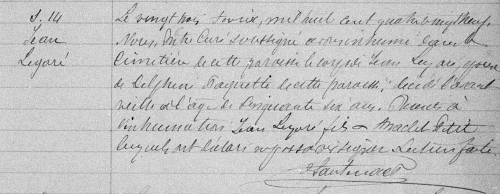 S. 14
Jean
Legaré
Le vingt trois Février, mil huit cent quatre vingt neuf
Nous, Prêtre Curé soussigné avons inhumé dans le
cimetière de cette paroisse le corps de Jean Legaré, époux
de Delphine Paquette de cette paroisse, décédé l'avant
veille à l'âge de Cinquante six ans. Présents à
l'inhumation Jean Legaré fils
lesquels ont déclaré ne pouvoir signer. Lecture faite